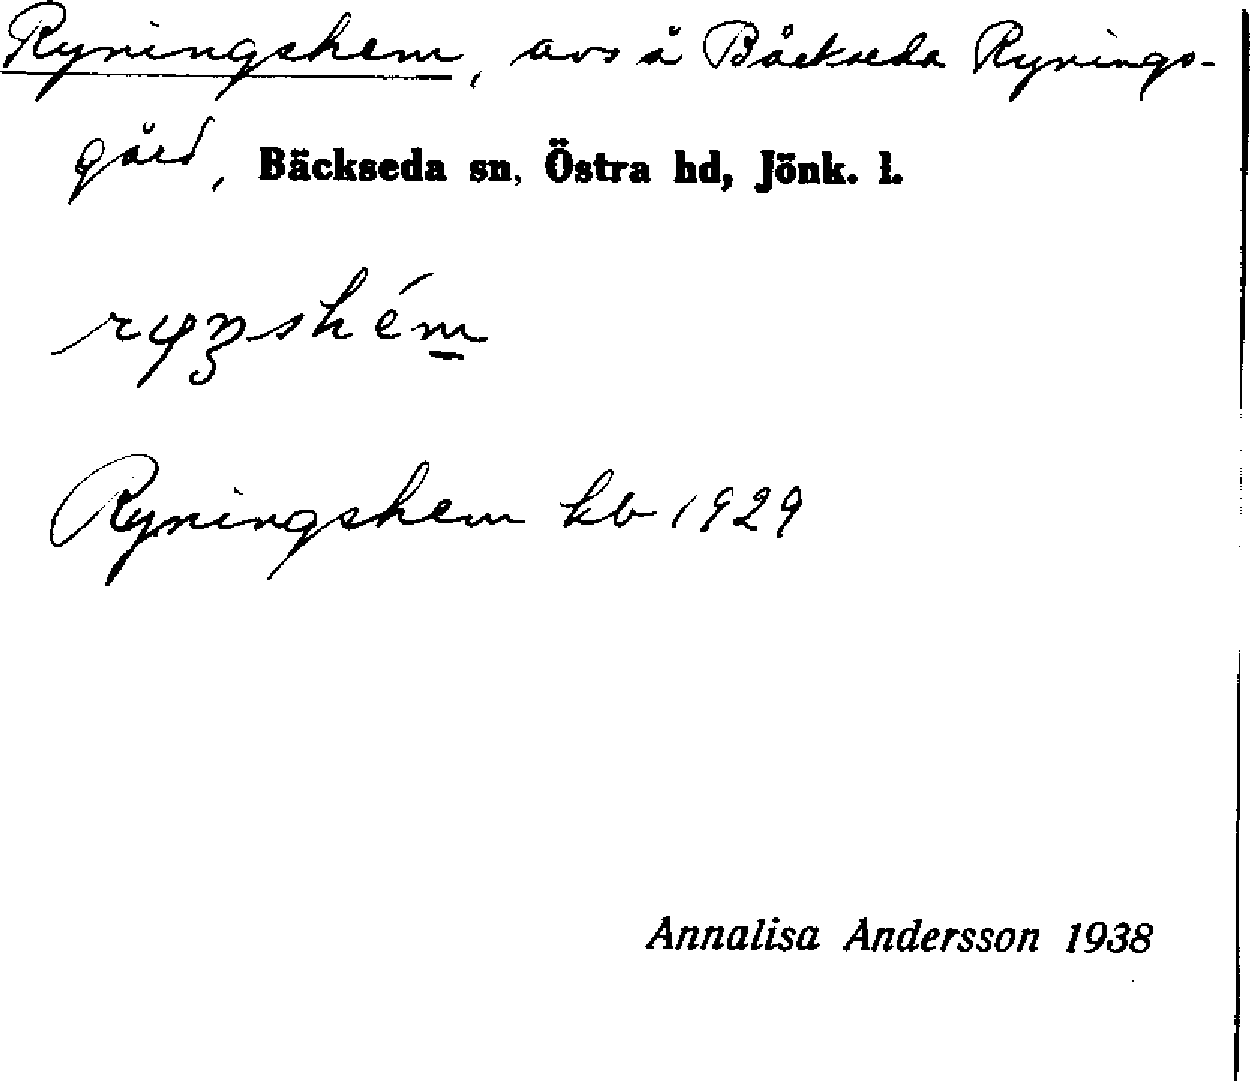 Ryningshem, avs å Bäckseda Rynings-
gård, Bäckseda sn, Östra hd, Jönk. l.
Ryningshem kb 1929
Annalisa Andersson 1938